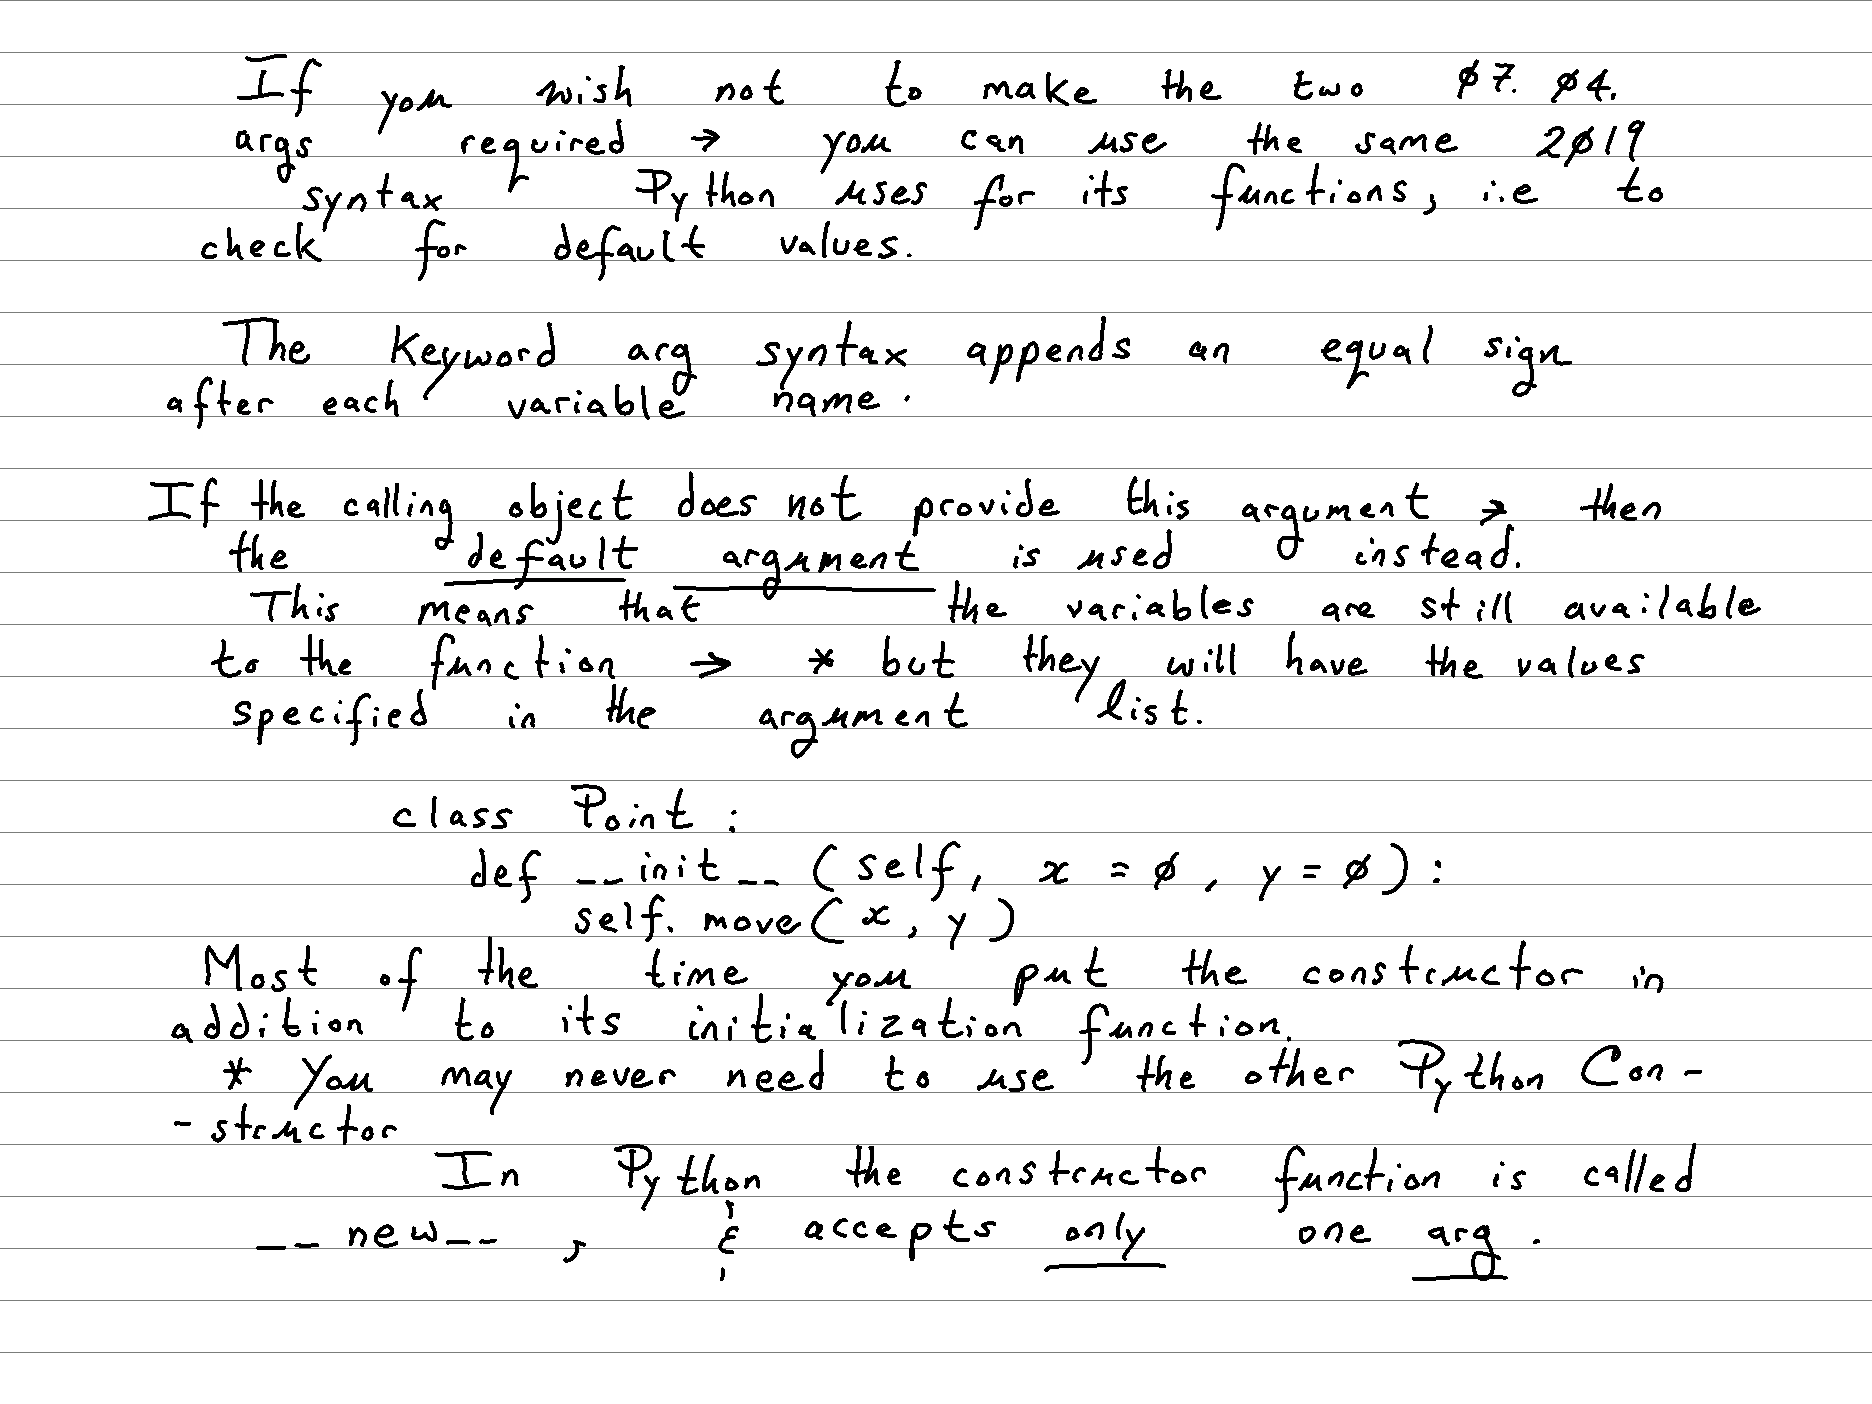 If you wish not to make the two 07. 04.
args required → you can use the same 2019
syntax Python uses for its functions, i.e to
check for default values.
The Keyword arg syntax appends an equal sign
after each variable name.
If the calling object does not provide this argument → then
the default argument is used instead.
This means that the variables are still available
to the function → * but they will have the values
specified in the argument list.
class Point:
def __init__(self, x = 0, y = 0):
self.move(x, y)
Most of the time you put the constructor in
addition to its initialization function.
* You may never need to use the other Python Con-
-structor
In Python the constructor function is called
__new__, & accepts only one arg.